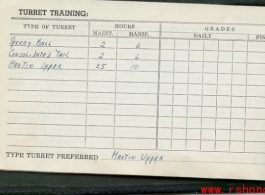 TURRET TRAINING:
TYPE OF TURRET HOURS GRADES
MAINT. MANIP. DAILY FIN
Sperry Ball 2 6
Consolidated Tail 2 6
Martin Upper 25 10
TYPE TURRET PREFERRED Martin Upper
www.rshope